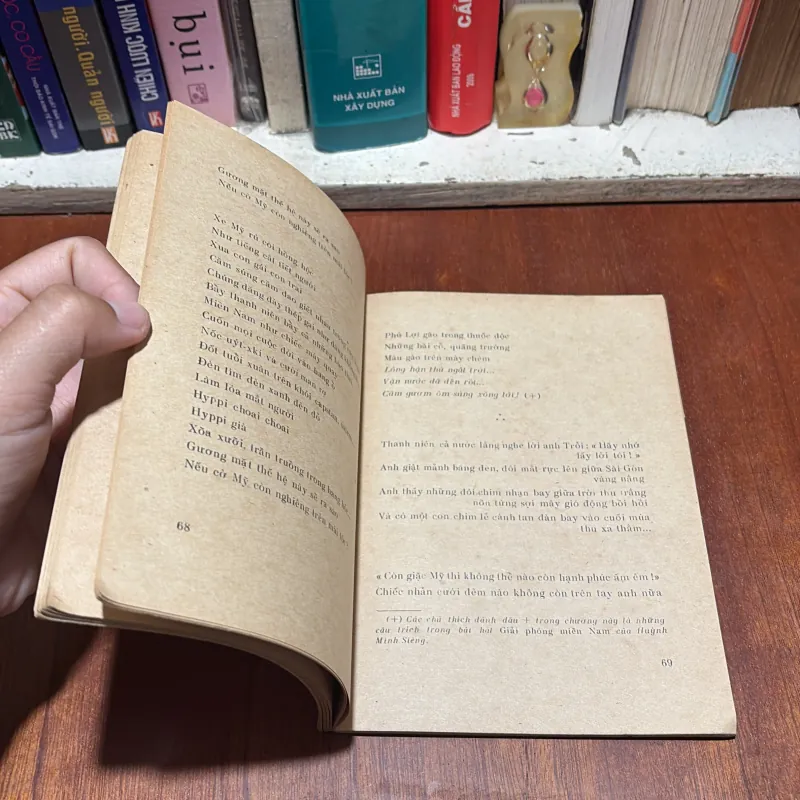 CƠ CẤU
người. Quản người
CHÍNH
bụi
NHÀ XUẤT BẢN
XÂY DỰNG
CẨ
NHÀ XUẤT BẢN LAO ĐỘNG
Gương mặt thế hệ này sẽ ra sao
Nếu cờ Mỹ còn nghiêng trên
Xe Mỹ rú còi hồng hộc
Như tiếng cắt tiết người
Xua con gái con trai
Cầm súng cầm dao giết nhau
Chúng đăng dây thép gai
Bầy thanh niên bầy sẽ
Miền Nam như chiếc máy quay
Cuốn mọi cuộc đời vào hàng ổ
Nốc uýt-xki và cười man rợ
Đốt tuổi xuân trên khói capstan
Đèn tím đèn xanh đèn đỏ
Làm lóa mắt người
Hyppi choai choai
Hyppi già
Xõa xuỡi, trần truồng trong
Gương mặt thế hệ này sẽ ra sao
Nếu cờ Mỹ còn nghiêng trên
68
Phú Lợi gào trong thuốc độc
Những bãi cỏ, quảng trường
Máu gào trên máy chém
Lòng hận thù ngất trời...
Vận nước đã đến rồi...
Cầm gươm ôm súng xông tới! (+)
Thanh niên cả nước lắng nghe lời anh Trỗi: « Hãy nhớ
lấy lời tôi ! »
Anh giật mảnh băng đen, đôi mắt rực lên giữa Sài Gòn
vàng nắng
Anh thấy những đôi chim nhạn bay giữa trời thu trắng
nõn từng sợi mây gió động bồi hồi
Và có một con chim lẻ cánh tan đàn bay vào cuối mùa
thu xa thẳm...
« Còn giặc Mỹ thì không thể nào còn hạnh phúc ấm êm !»
Chiếc nhẫn cưới đêm nào không còn trên tay anh nữa
(+) Các chú thích đánh dấu + trong chương này là những
câu trích trong bài hát Giải phóng miền Nam của Huỳnh
Minh Siêng.
69